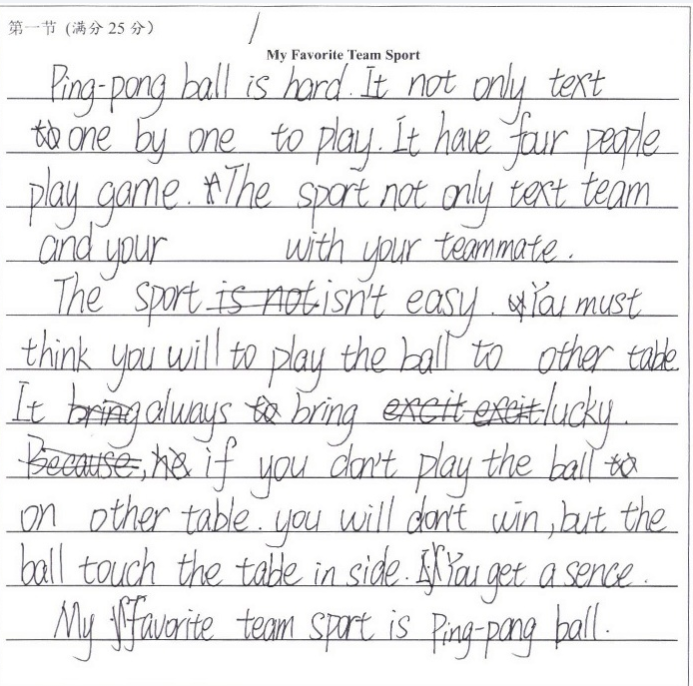 第一节 (满分 25 分)
My Favorite Team Sport
Ping-pong ball is hard. It not only text
one by one to play. It have four people
play game. The sport not only text team
and your with your teammate.
The sport is not isn't easy. You must
think you will to play the ball to other table.
It bring always to bring excit excit lucky.
Because, he if you don't play the ball to
on other table. you will don't win, but the
ball touch the table in side. You get a sence.
My favorite team sport is Ping-pong ball.